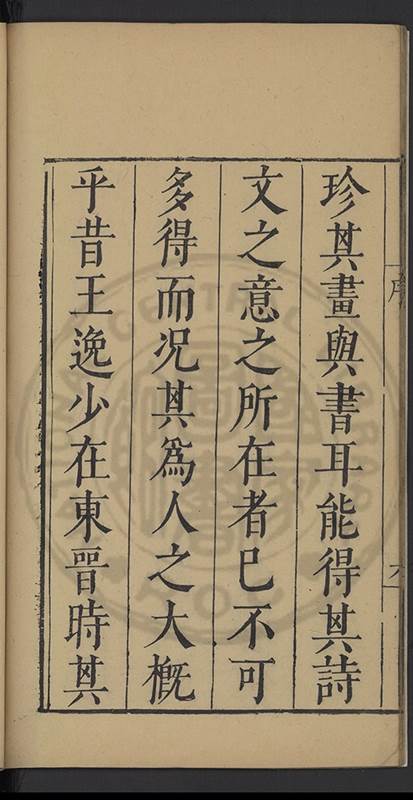 珍其畫與書耳能得其詩
文之意之所在者已不可
多得而况其為人之大概
乎昔王逸少在東晉時其
序